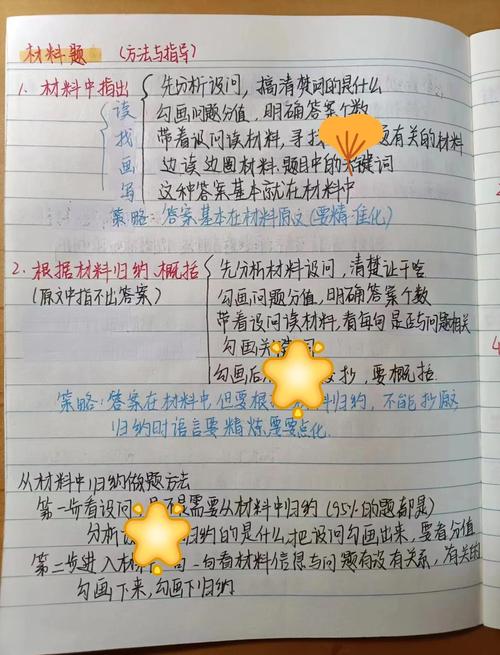 材料题 (方法与指导)
1. 材料中指出 先分析设问，搞清楚问的是什么
读 勾画问题分值，明确答案个数
找 带着设问读材料，寻找 有关的材料
画 边读边圈材料、题目中的 键词
写 这种答案基本就在材料中
策略：答案基本在材料原文(要精准化)
2. 根据材料归纳、概括 先分析材料设问，清楚让干啥
(原文中指不出答案) 勾画问题分值，明确答案个数
带着设问读材料，看每句是否与问题相关
勾画关 词
勾画后 抄，要概括.
策略：答案在材料中，但要根 料归纳，不能抄原文
归纳时语言要精炼要要点化.
从材料中归纳做题方法
第一步看设问 是需要从材料中归纳 (95%的题都是)
分析 归纳的是什么，把设问勾画出来，要看分值
第二步进入材 一句看材料信息与问题有没有关系，有关的
勾画下来，勾画下归纳